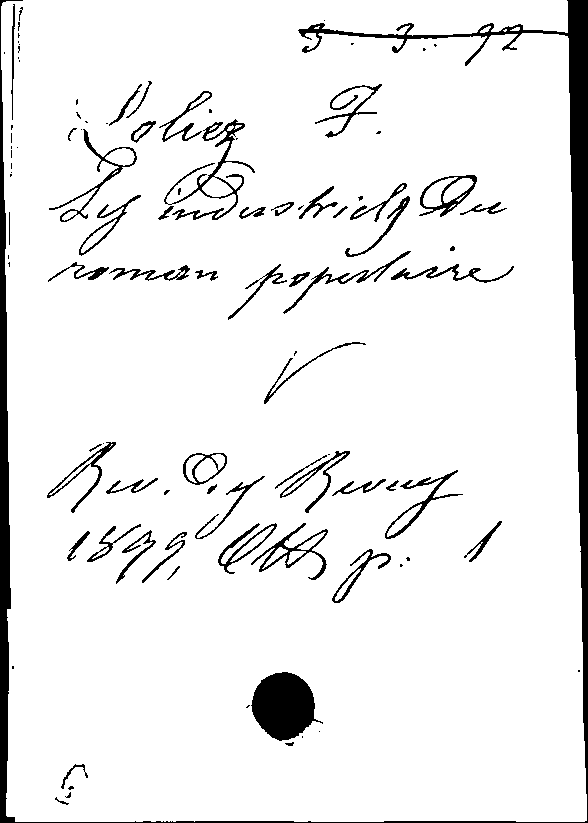 3. 3. 92
Loliez F.
Les industriels du
roman populaire
V
Rev. des Revues
1899, Octb p. 1